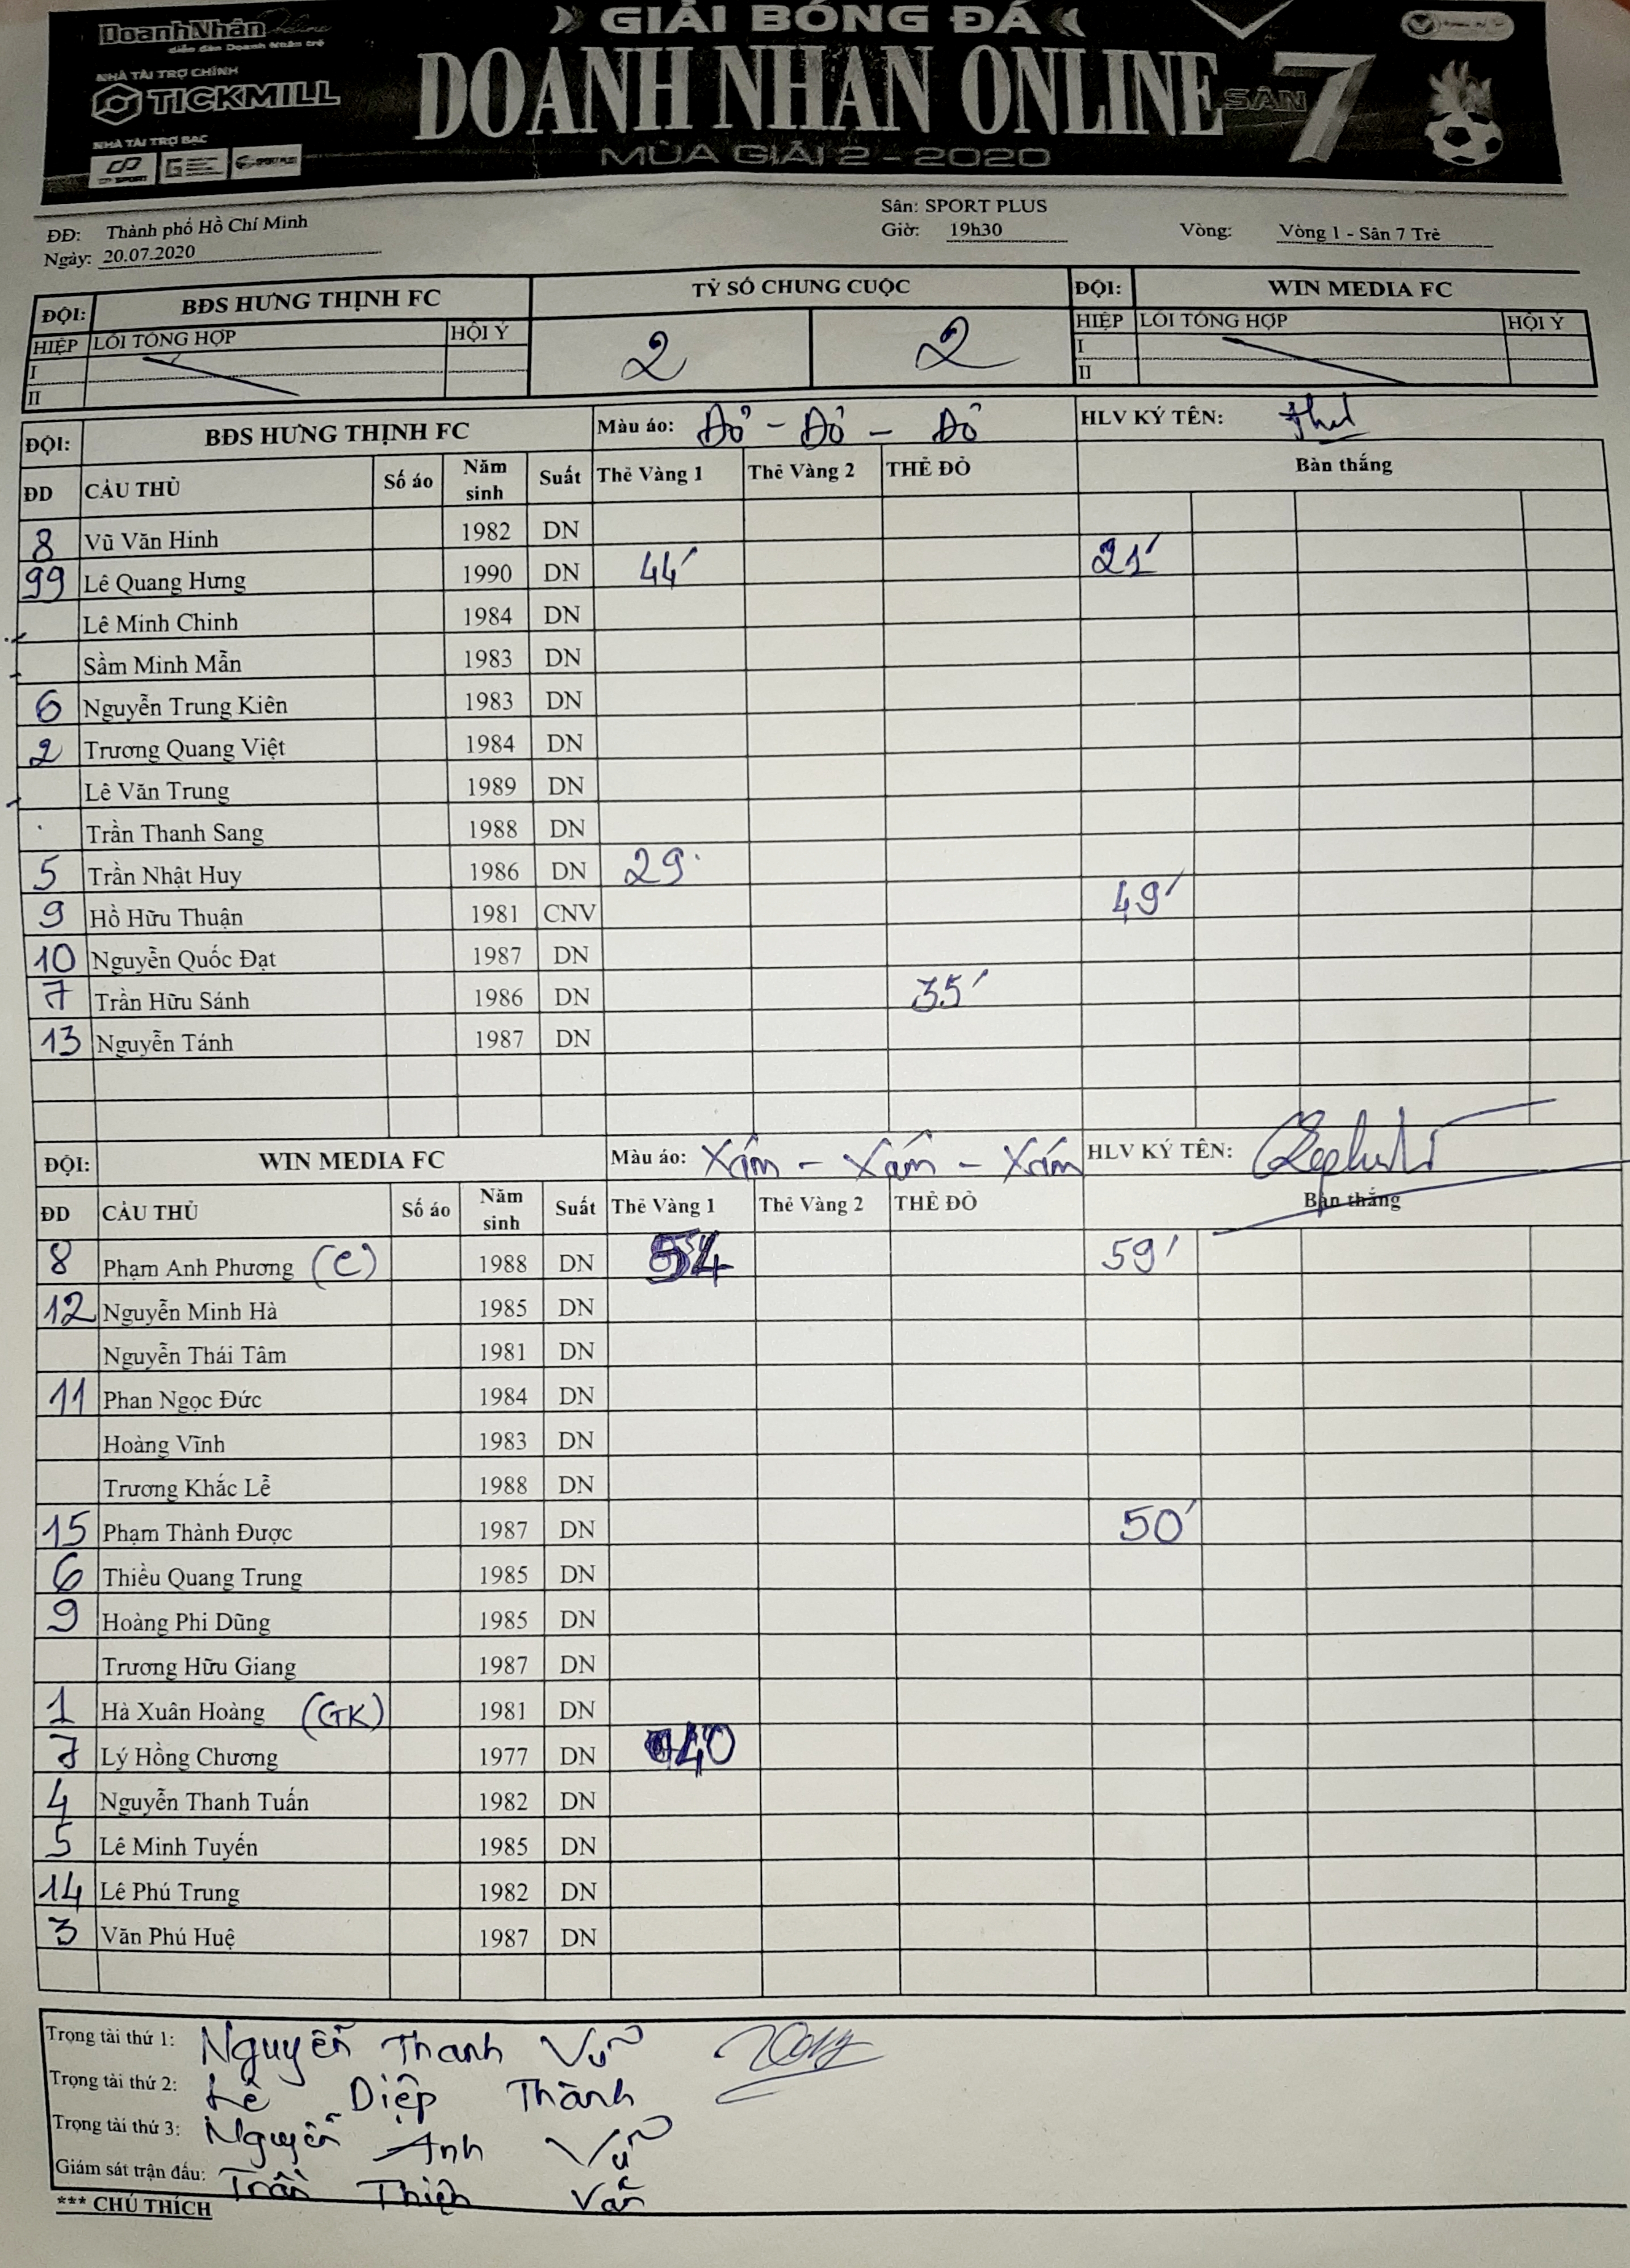 DoanhNhân Online
diễn đàn Doanh Nhân trẻ
NHÀ TÀI TRỢ CHÍNH
TICKMILL
NHÀ TÀI TRỢ BẠC
SPORT PLUS
GIẢI BÓNG ĐÁ
DOANH NHÂN ONLINE
SÂN 7
MÙA GIẢI 2 - 2020
ĐĐ: Thành phố Hồ Chí Minh
Ngày: 20.07.2020
Sân: SPORT PLUS
Giờ: 19h30
Vòng: Vòng 1 - Sân 7 Trẻ
ĐỘI: BĐS HƯNG THỊNH FC TỶ SỐ CHUNG CUỘC ĐỘI: WIN MEDIA FC
HIỆP LỖI TỔNG HỢP HỘI Ý 2 2 HIỆP LỖI TỔNG HỢP HỘI Ý
I I
II II
ĐỘI: BĐS HƯNG THỊNH FC Màu áo: Đỏ - Đỏ - Đỏ HLV KÝ TÊN:
ĐD CẦU THỦ Số áo Năm sinh Suất Thẻ Vàng 1 Thẻ Vàng 2 THẺ ĐỎ Bàn thắng
8 Vũ Văn Hinh 1982 DN
99 Lê Quang Hưng 1990 DN 44' 21'
Lê Minh Chinh 1984 DN
Sầm Minh Mẫn 1983 DN
6 Nguyễn Trung Kiên 1983 DN
2 Trương Quang Việt 1984 DN
Lê Văn Trung 1989 DN
Trần Thanh Sang 1988 DN
5 Trần Nhật Huy 1986 DN 29'
9 Hồ Hữu Thuận 1981 CNV 49'
10 Nguyễn Quốc Đạt 1987 DN
7 Trần Hữu Sánh 1986 DN 35'
13 Nguyễn Tánh 1987 DN
ĐỘI: WIN MEDIA FC Màu áo: Xám - Xám - Xám HLV KÝ TÊN:
ĐD CẦU THỦ Số áo Năm sinh Suất Thẻ Vàng 1 Thẻ Vàng 2 THẺ ĐỎ Bàn thắng
8 Phạm Anh Phương (C) 1988 DN 54 59'
12 Nguyễn Minh Hà 1985 DN
Nguyễn Thái Tâm 1981 DN
11 Phan Ngọc Đức 1984 DN
Hoàng Vĩnh 1983 DN
Trương Khắc Lễ 1988 DN
15 Phạm Thành Được 1987 DN 50'
6 Thiều Quang Trung 1985 DN
9 Hoàng Phi Dũng 1985 DN
Trương Hữu Giang 1987 DN
1 Hà Xuân Hoàng (GK) 1981 DN
7 Lý Hồng Chương 1977 DN 40
4 Nguyễn Thanh Tuấn 1982 DN
5 Lê Minh Tuyến 1985 DN
14 Lê Phú Trung 1982 DN
3 Văn Phú Huệ 1987 DN
Trọng tài thứ 1: Nguyễn Thanh Vũ
Trọng tài thứ 2: Lê Diệp Thành
Trọng tài thứ 3: Nguyễn Anh Vũ
Giám sát trận đấu: Trần Thiện Văn
*** CHÚ THÍCH